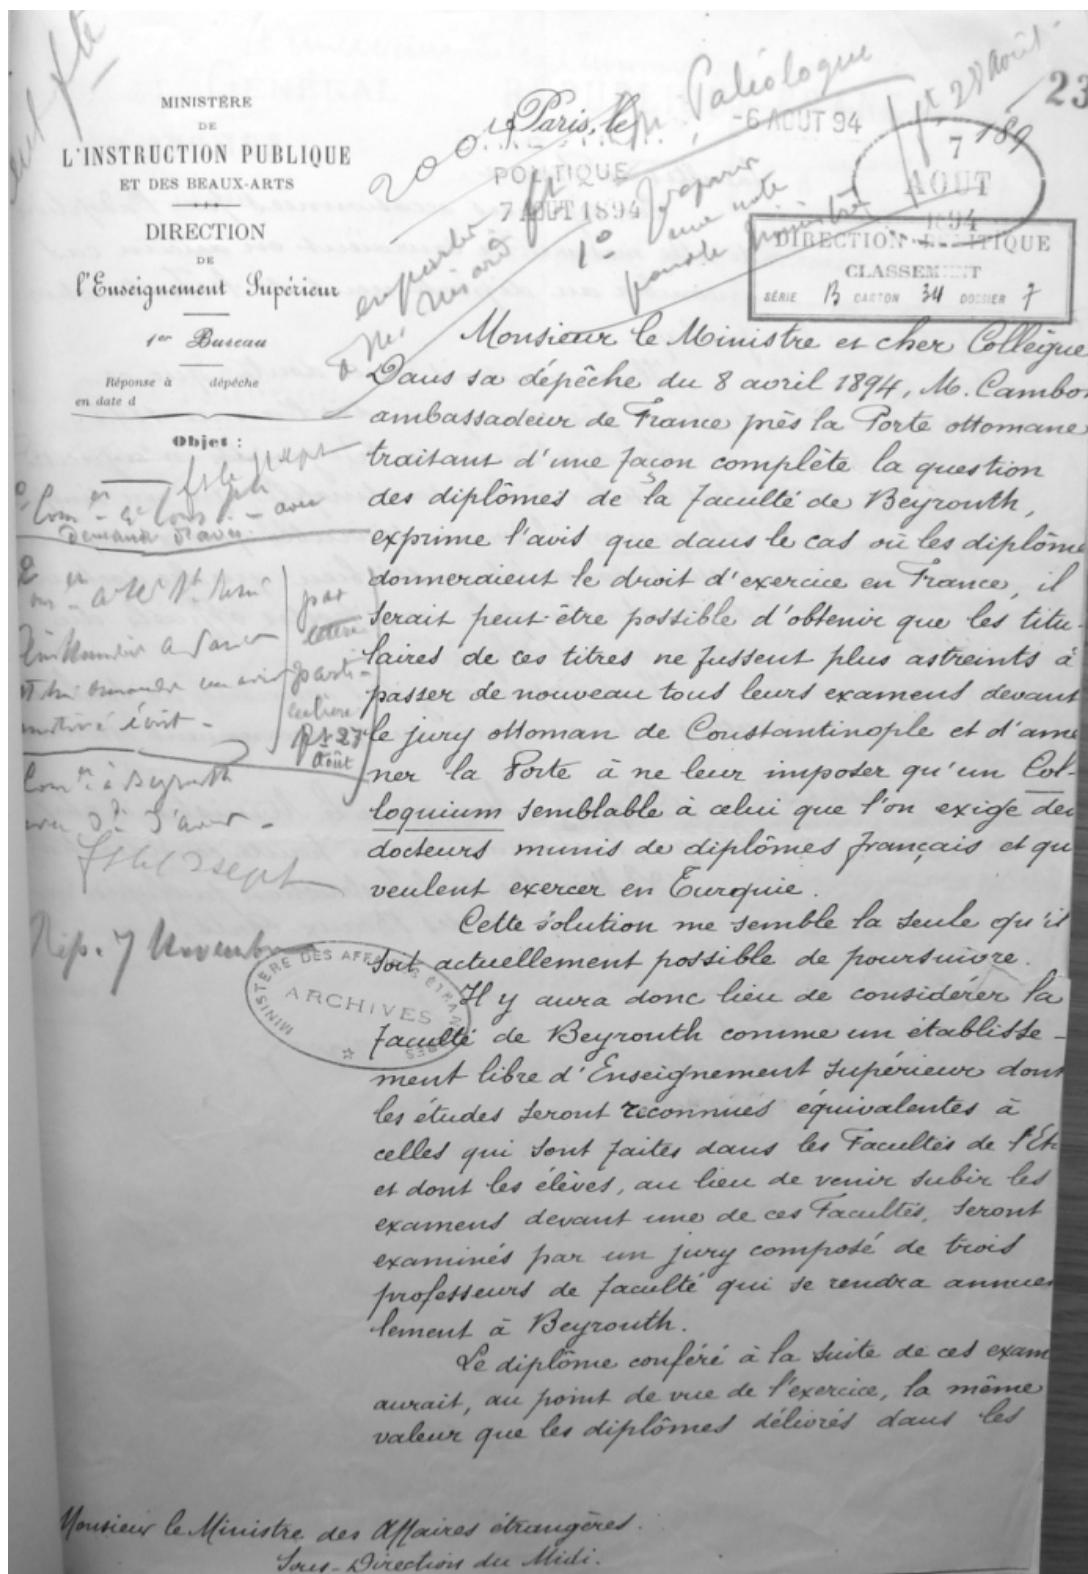 23
MINISTÈRE
DE
L'INSTRUCTION PUBLIQUE
ET DES BEAUX-ARTS
DIRECTION
DE
l'Enseignement Supérieur
1er Bureau
Réponse à dépêche
en date d
Objet :
Paris, le
-6 AOUT 94
189
Paléologue
POLITIQUE
7 AOUT 1894
7
AOUT
1894
1º Préparer
une note
pour le ministre
DIRECTION POLITIQUE
CLASSEMENT
SÉRIE B CARTON 34 DOSSIER 7
par
lettre
parti-
culière
27
Août
Rép. 7 Novembre
MINISTÈRE DES AFFAIRES ÉTRANGÈRES
ARCHIVES
Monsieur le Ministre et cher Collègue
Dans sa dépêche du 8 avril 1894, M. Cambon
ambassadeur de France près la Porte ottomane
traitant d'une façon complète la question
des diplômes de la faculté de Beyrouth,
exprime l'avis que dans le cas où les diplôme
donneraient le droit d'exercice en France, il
serait peut-être possible d'obtenir que les titu-
laires de ces titres ne fussent plus astreints à
passer de nouveau tous leurs examens devant
le jury ottoman de Constantinople et d'ame
ner la Porte à ne leur imposer qu'un Col-
loquium semblable à celui que l'on exige des
docteurs munis de diplômes français et qu
veulent exercer en Turquie.
Cette solution me semble la seule qu'il
soit actuellement possible de poursuivre.
Il y aura donc lieu de considérer la
faculté de Beyrouth comme un établisse-
ment libre d'Enseignement supérieur dont
les études seront reconnues équivalentes à
celles qui sont faites dans les Facultés de l'Et
et dont les élèves, au lieu de venir subir les
examens devant une de ces Facultés, seront
examinés par un jury composé de trois
professeurs de faculté qui se rendra annuel
lement à Beyrouth.
Le diplôme conféré à la suite de ces exam
aurait, au point de vue de l'exercice, la même
valeur que les diplômes délivrés dans les
Monsieur le Ministre des Affaires étrangères.
Sous-Direction du Midi.